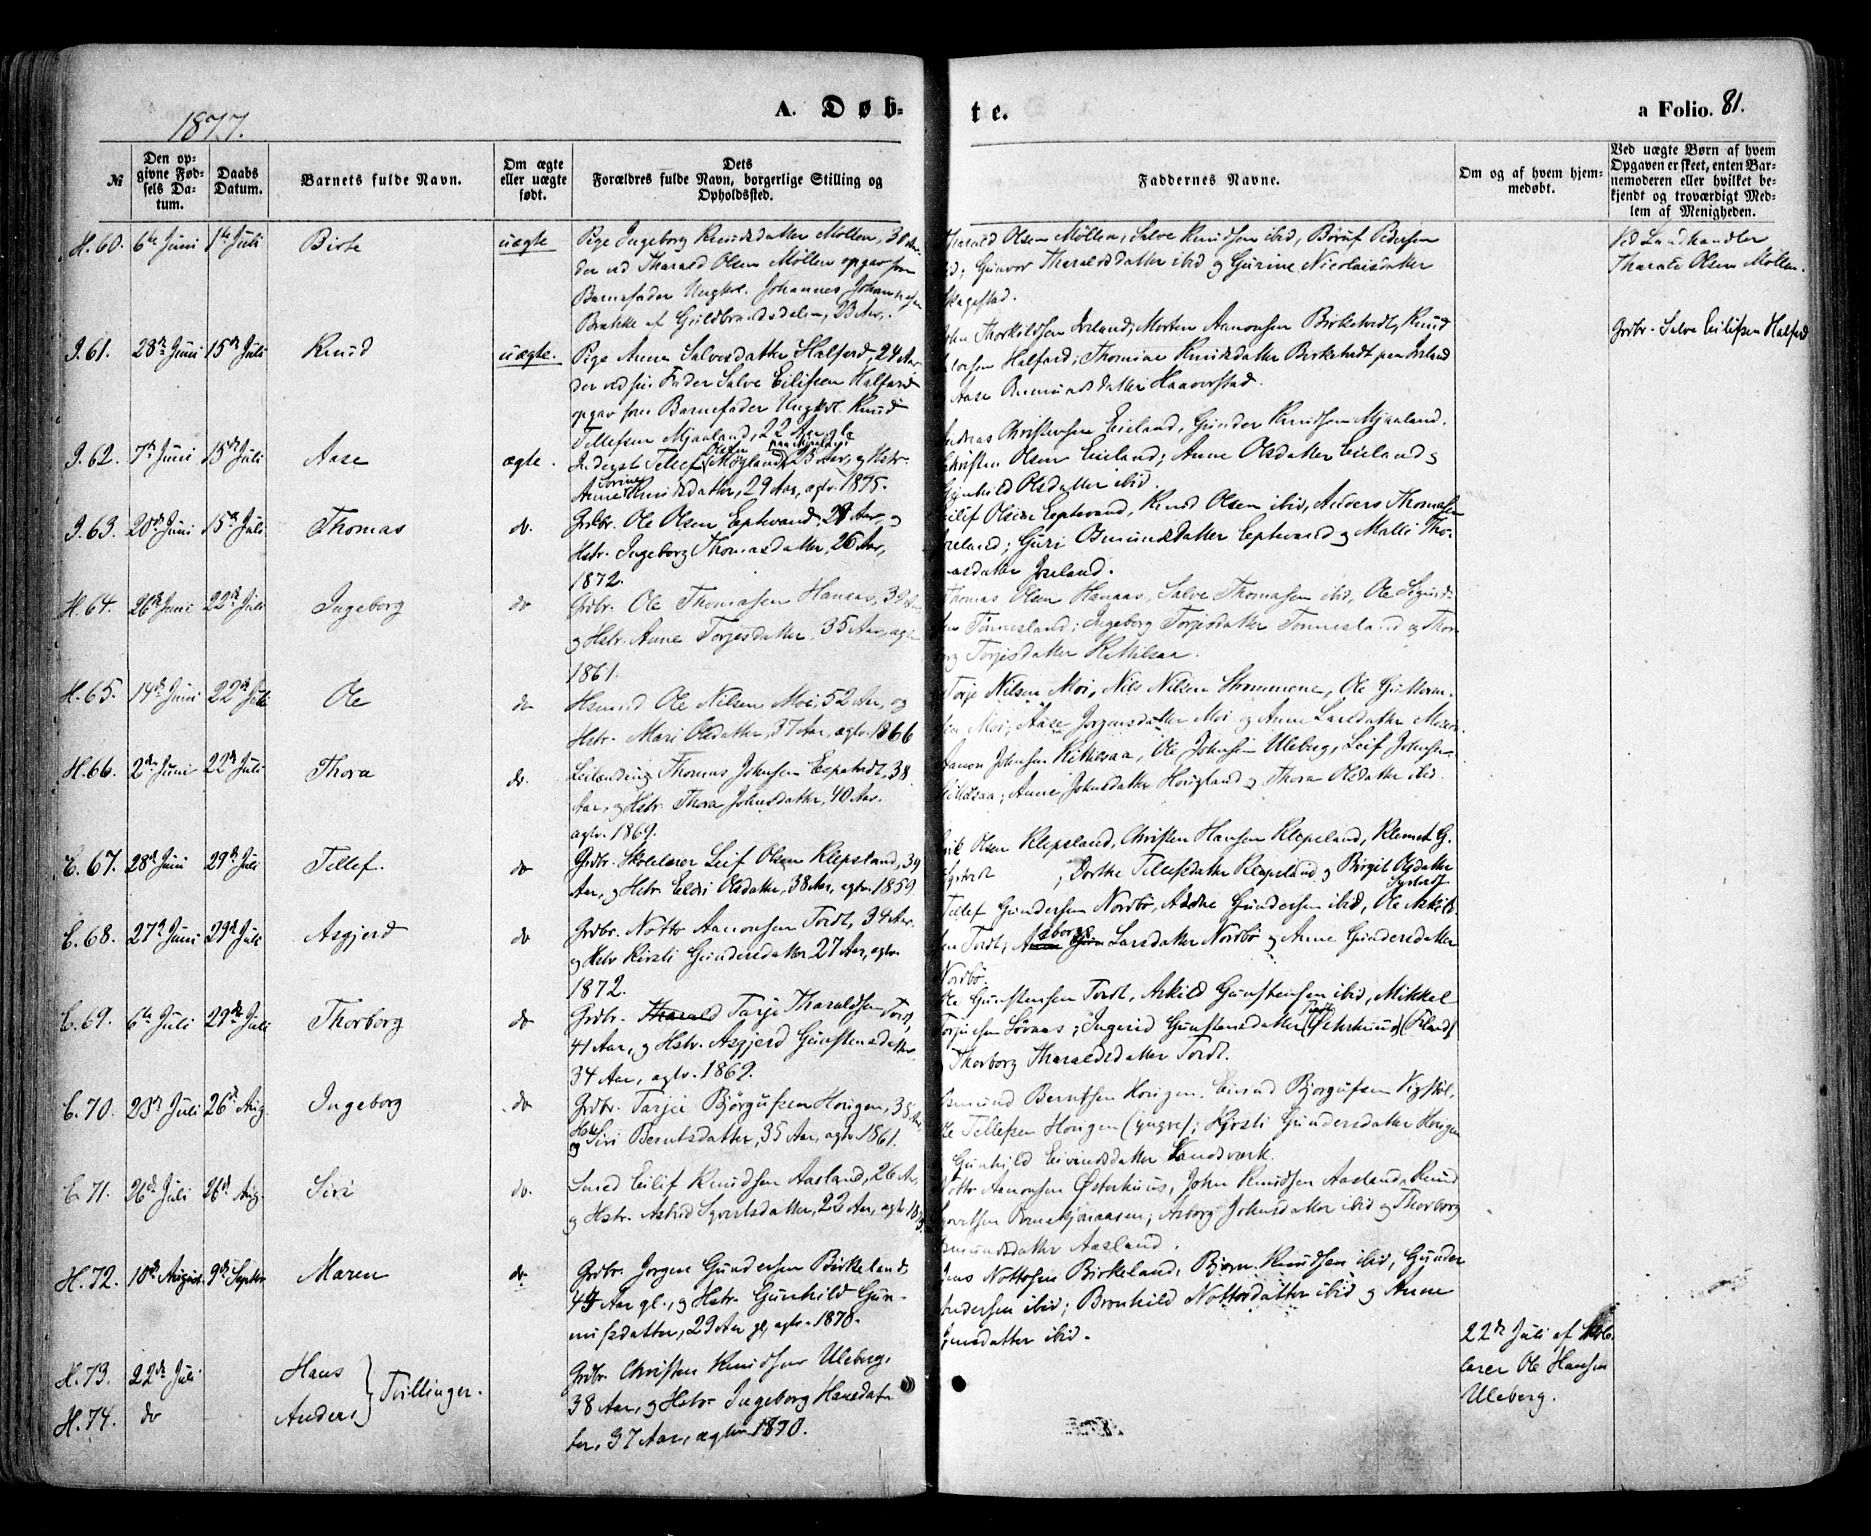 1877.
A. Døb-
te.
a Folio. 81.
№
Den op-
givne Fød-
sels Da-
tum.
Daabs
Datum.
Barnets fulde Navn.
Om ægte
eller uægte
født.
Dets
Forældres fulde Navn, borgerlige Stilling og
Opholdssted.
Faddernes Navne.
Om og af hvem hjem-
medøbt.
Ved uægte Børn af hvem
Opgaven er skeet, enten Bar-
nemoderen eller hvilket be-
kjendt og troværdigt Med-
lem af Menigheden.
H. 60. 6te Juni 1te Juli Birte uægte
Pige Ingeborg Knudsdatter Møllen, 30 Aar
der ved Tharald Olsen Møllen opgav som
Barnefader Ungkl. Johannes Johannesen
Brække af Guldbrandsdalen, 23 Aar.
Tharald Olsen Møllen, Salve Knudsen ibid, Børuf Pedersen
Gunvor Tharaldsdatter ibid og Gurine Nicolaisdatter
Ved Landhandler
Tharald Olsen Møllen.
I. 61. 28de Juni 15de Juli Knud uægte.
Pige Anne Salvesdatter Halfard, 24 Aar
der ved sin Fader Salve Eilifsen Halfard
opgav som Barnefader Ungkl. Knud
Tellefsen Mjaaland, 22 Aar gl.
Thorkildsen Iveland, Morten Aanonsen Birketvedt, Knud
Halfard; Thomine Knudsdatter Birketvedt paa Iveland
Aase Omundsdatter Haaverstad.
Grdbr. Salve Eilifsen Halfard
I. 62. 7de Juni 15de Juli Aase ægte.
Inderst Tellef Olsen Møgland, 23 Aar, og Hstr.
Anne Torine Knudsdatter, 29 Aar, agtv. 1875.
Andreas Christensen Eieland, Gunder Knudsen Mjaaland.
Christen Olsen Eieland; Anne Olsdatter Eieland og
Gunhild Olsdatter ibid.
I. 63. 20de Juni 15de Juli Thomas do.
Grdbr. Ole Olsen Eptevand, 29 Aar, og
Hstr. Ingeborg Thomasdatter, 26 Aar,
1872.
Eilif Olsen Eptevand, Knud Olsen ibid, Anders Thomasen
Iveland; Guri Omundsdatter Eptevand og Malli Tho-
masdatter Iveland.
H. 64. 26de Juni 22de Juli Ingeborg do
Grdbr. Ole Thomasen Hanaas, 39 Aar,
og Hstr. Anne Torjesdatter, 35 Aar, agtv.
1861.
Thomas Olsen Hanaas, Salve Thomasen ibid, Ole Sigurd-
sen Tønnesland; Ingeborg Torjesdatter Tønnesland og Thor-
borg Torjesdatter Kittilsaa.
H. 65. 14de Juni 22de Juli Ole do
Husmand Ole Nilsen Moi, 52 Aar, og
Hstr. Mari Olsdatter, 37 Aar, agtv. 1866
Torje Nilsen Moi, Nils Nilsen Strømmene, Ole Guttorm-
sen Moi; Aase Jørgensdatter Moi og Anne Larsdatter
H. 66. 2den Juni 22de Juli Thora do.
Leilænding Thomas Johnsen Espetvedt, 38
Aar, og Hstr. Thora Johnsdatter, 40 Aar.
agtv. 1869.
Aanon Johnsen Kittilsaa, Ole Johnsen Uleberg, Leif Johnsen
Kittilsaa; Anne Johnsdatter Hougland og Thora Olsdatter ibid.
E. 67. 28de Juni 29de Juli Tellef. do
Grdbr. Skolelærer Leif Olsen Klepsland, 39
Aar, og Hstr. Eldri Olsdatter, 38 Aar, agtv. 1859
Olsen Klepsland, Christen Hansen Klepsland, Klemet G.
Sygtvedt; Dorthe Tellefsdatter Klepsland og Birgit Olsdatter
Sygtvedt
E. 68. 27de Juni 29de Juli Asgjerd do
Grdbr. Notto Aanonsen Tordt, 34 Aar.
og Hstr. Kirsti Gundersdatter 27 Aar, agtv.
1872.
Tellef Gundersen Nordbø, Gundersen ibid, Ole Askild-
sen Tordt; Larsdatter Nordbø og Anne Gundersdatter
Nordbø.
E. 69. 6te Juli 29de Juli Thorborg do
Grdbr. Tharald Tarje Tharaldsen Tordt,
41 Aar, og Hstr. Asgjerd Gunstensdatter
34 Aar, agtv. 1869.
Ole Gunstensen Tordt, Askild Gunstensen ibid, Mikkel
Løvaas; Ingerid Gunstensdatter Tordt
Thorborg Tharaldsdatter Tordt.
E. 70. 23de Juli 26de Aug. Ingeborg do
Grdbr. Tarjei Bjørgufsen Horigen, 38 Aar,
og Hstr. Siri Berntsdatter, 35 Aar, agtv. 1861.
Omund Berntsen Horigen, Eivind Bjorgufsen Vigstøl,
Ole Tellefsen Horigen (yngre); Kirsti Gundersdatter Horigen
Gunhild Eivindsdatter Landsverk.
E. 71. 26de Juli 26de Aug. Siri do.
Smed Eilif Knudsen Aasland, 26 Aar,
og Hstr. Astrid Sjurtsdatter, 22 Aar, agtv.
Notto Aanonsen Østerhuus, John Knudsen Aasland, Knud
Asborg Johnsdatter ibid og Thorborg
Omundsdatter Aasland.
H. 72. 10de August 9de Septbr Maren do
Grdbr. Jørgen Gundersen Birkeland
Aar gl., og Hstr. Gunhild Gun-
mufsdatter, 29 Aar gl, agtv. 1870.
Jens Nottosen Birkeland, Bjørn Knudsen ibid, Gunder
Andersen ibid; Brønhild Nottosdatter ibid og Anne
Jensdatter ibid.
H. 73. 22de Juli Hans
H. 74. do Anders } Tvillinger.
Grdbr. Christen Knudsen Uleberg,
38 Aar, og Hstr. Ingeborg Hansdat-
ter, 37 Aar, agtv. 1870.
22de Juli af Skole-
lærer Ole Hansen
Uleberg.